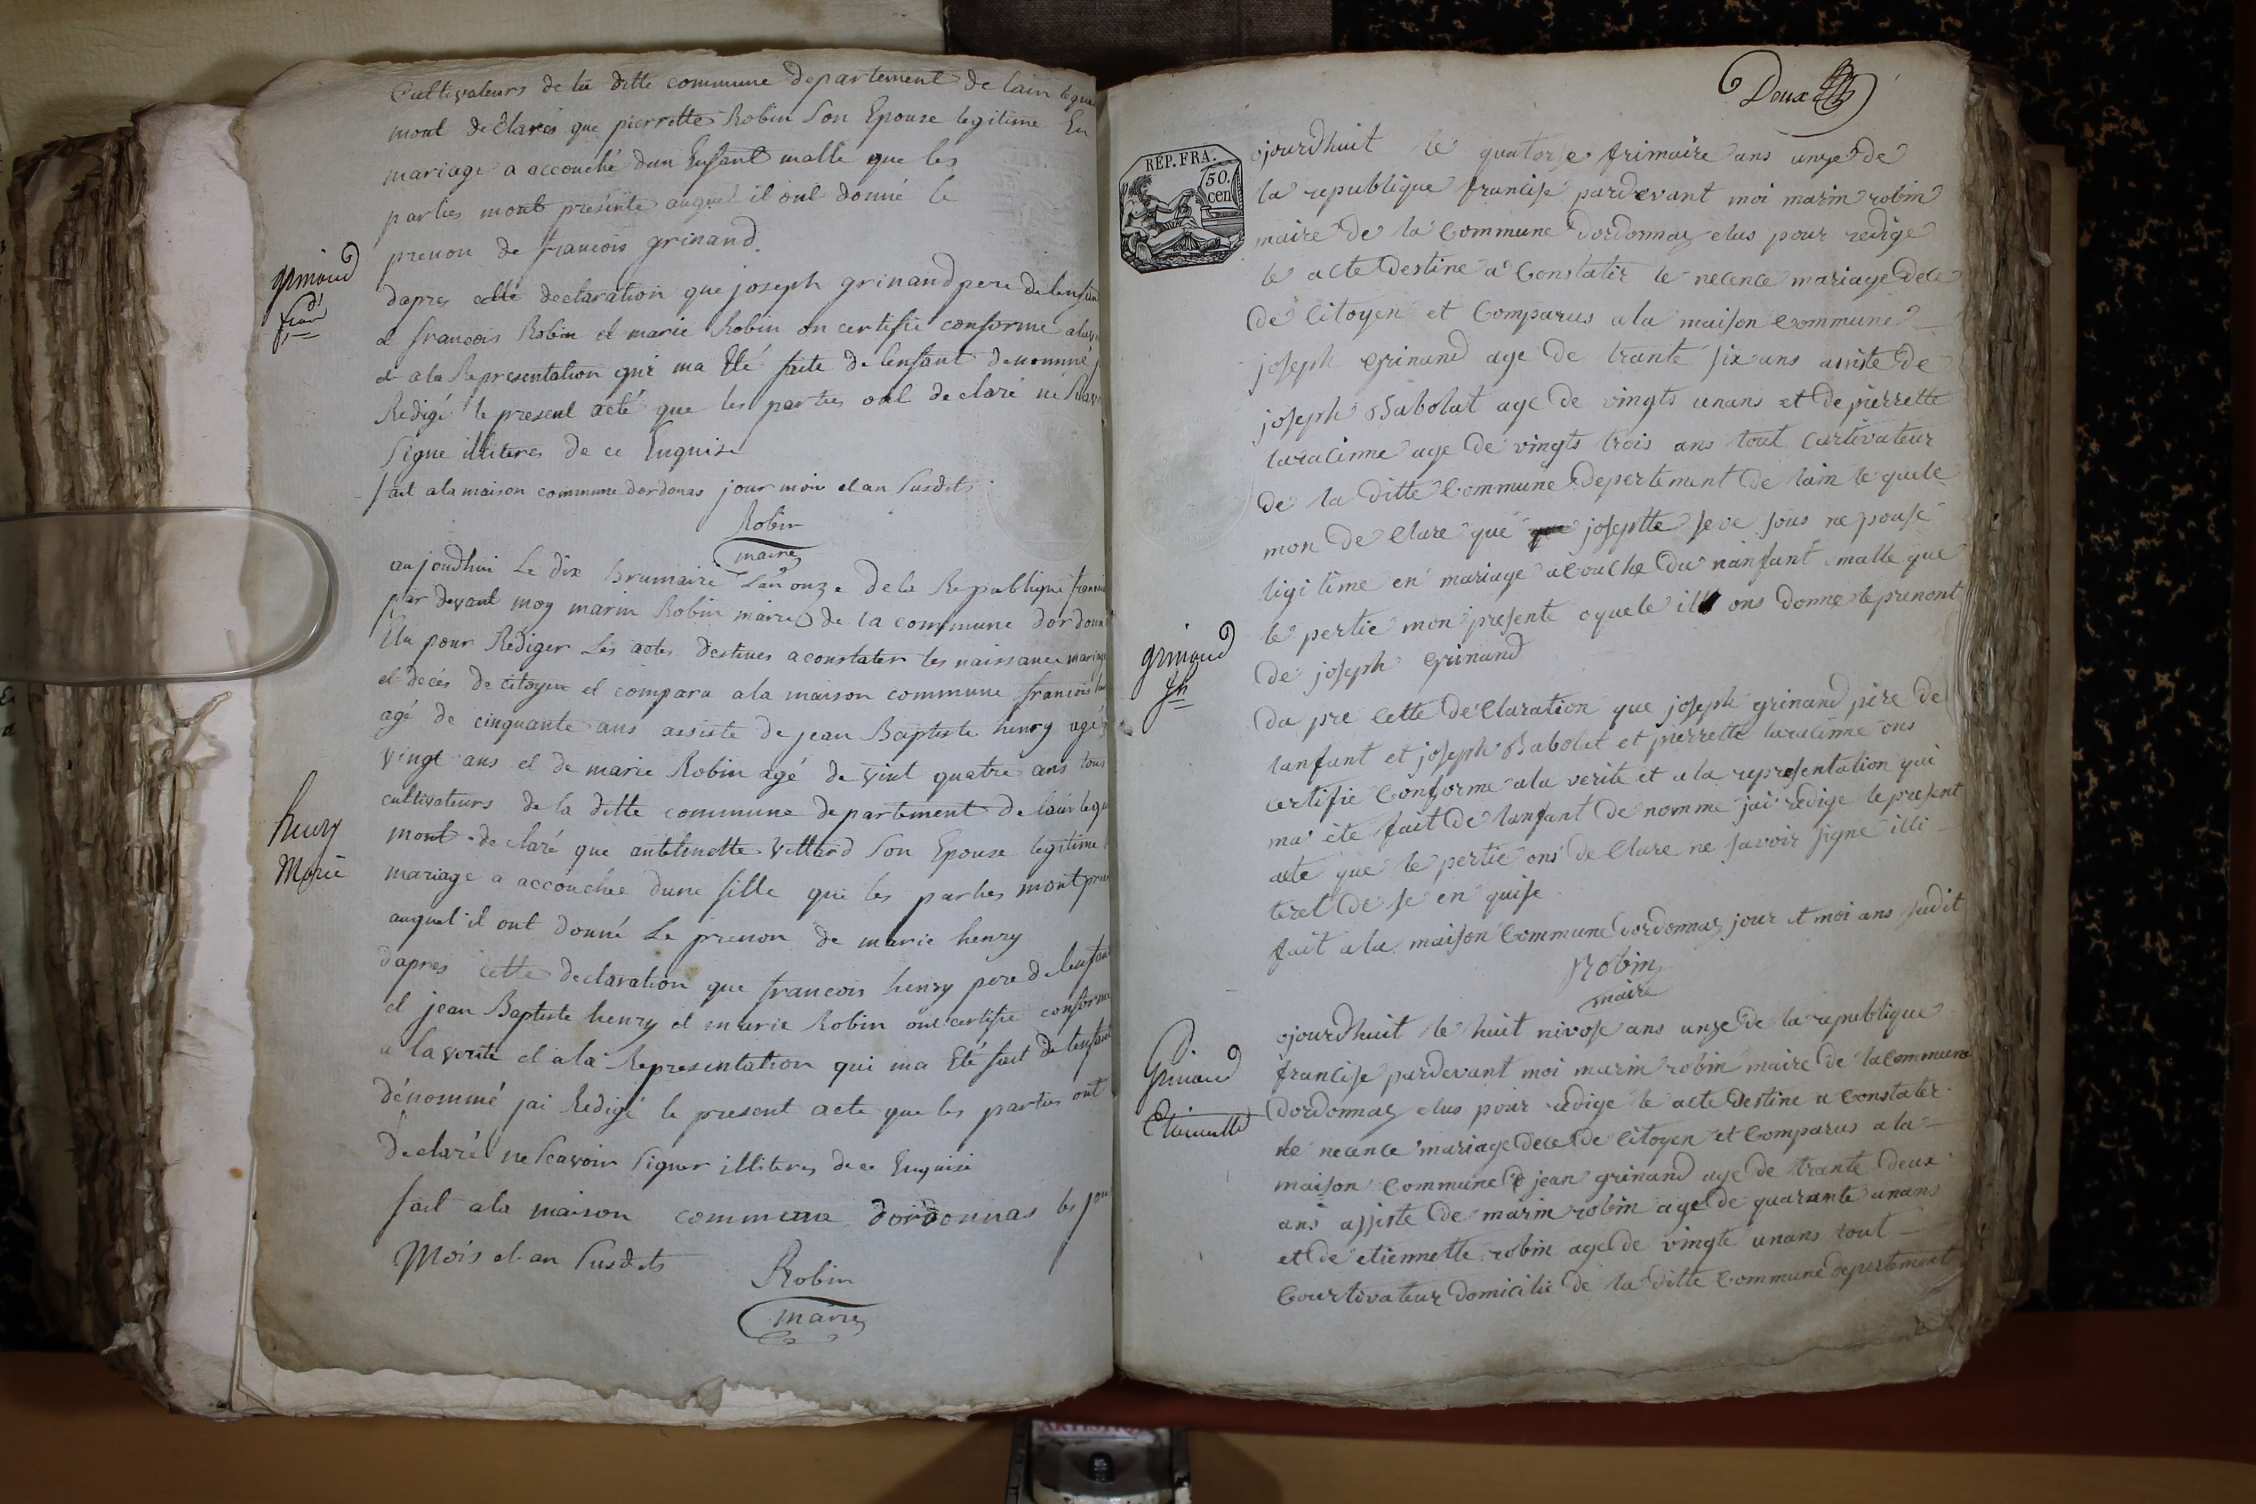 Cultivateurs de la ditte commune departement de lain
mont declarés que pierrette Robin son Epouse legitime En
mariage a accouché dun Enfant malle que les
parties mont presente auquel il ont donné le
prenon de francois grinand.
grinand
fcois
dapres cette declaration que joseph grinand pere de lenfan
et francois Robin et marie Robin on certifie conforme
et a la Representation qui ma Eté faite de lenfant denommé
Redigé le present acté que les parties ont declaré né
signe illiteres de ce Enquise
fait a la maison commune dordonas jour mois et an susdits
Robin
maire
aujoudhui Le dix brumaire Lan onze de la Republique
par devant moy marin Robin maire de la commune dordonn
Elu pour Rédiger Les actes destines a constater les naissance mariag
et décés de citoyen et compara a la maison commune francois
agé de cinquante ans assisté de jean Baptiste henry agé
vingt ans et de marie Robin agé de vint quatre ans tous
cultivateurs de la ditte commune departement de lain
henry
Marie
mont declaré que anthelmette Villard son Epouse legitime
mariage a accouchee dune fille que les parties mont
auquel il ont donné Le prenon de marie henry
dapres cette declaration que francois henry pere de lenfan
et jean Baptiste henry et marie Robin ont certifie conforme
a la verité et a la Representation qui ma Eté fait de lenfan
dénommé jai Redigé le present acte que les parties ont
declaré ne scavoir signer illiteres de ce Enquise
fait a la maison commune dordonnas les jou
Mois et an susdits
Robin
maire
Deux
REP. FRA.
50.
cen
ojourdhuit le quatorse frimaire ans unze de
la republique francise pardevant moi marin robin
maire de la Commune dordonnaz elus pour redige
le acte destine a Constatir le necence mariage dece
de Citoyen et Comparus a la maison commune
joseph grinand age de trante six ans assiste de
joseph Babolat age de vingts unans et de pierrette
laracinne age de vingts trois ans tout curtivateur
de la ditte Commune depertement de lain le quele
mon de Clare que josephte seve sous ne pouse
ligitime en mariage acouche du nanfant malle que
le pertie mon presente oquele ill ons donne le prenont
de joseph grinand
grinand
jh
da pre Cette déClaration que joseph grinand pére de
lanfant et joseph Babolat et pierrette laracinne ons
certifie Conforme a la verite et a la representation qui
ma éte fait de lanfant de nomme jai redige le present
acte que le pertie ons de Clare ne savoir signe illi
teret de se en quise
fait a la maison Commune dordonnaz jour et moi ans sudit
Robin
maire
ojourdhuit le huit nivose ans unze de la republique
francise pardevant moi marin robin maire de la Commune
Grinand
Etiennette
dordonnaz elus pour redige le acte destine a Constater
le necence mariage dece de Citoyen et Comparus a la
maison Commune jean grinand age de trante deux
ans assiste de marin robin age de quarante unans
et de etiennette robin age de vingte unans tout
Courtivateur domicilie de la ditte Commune depertement